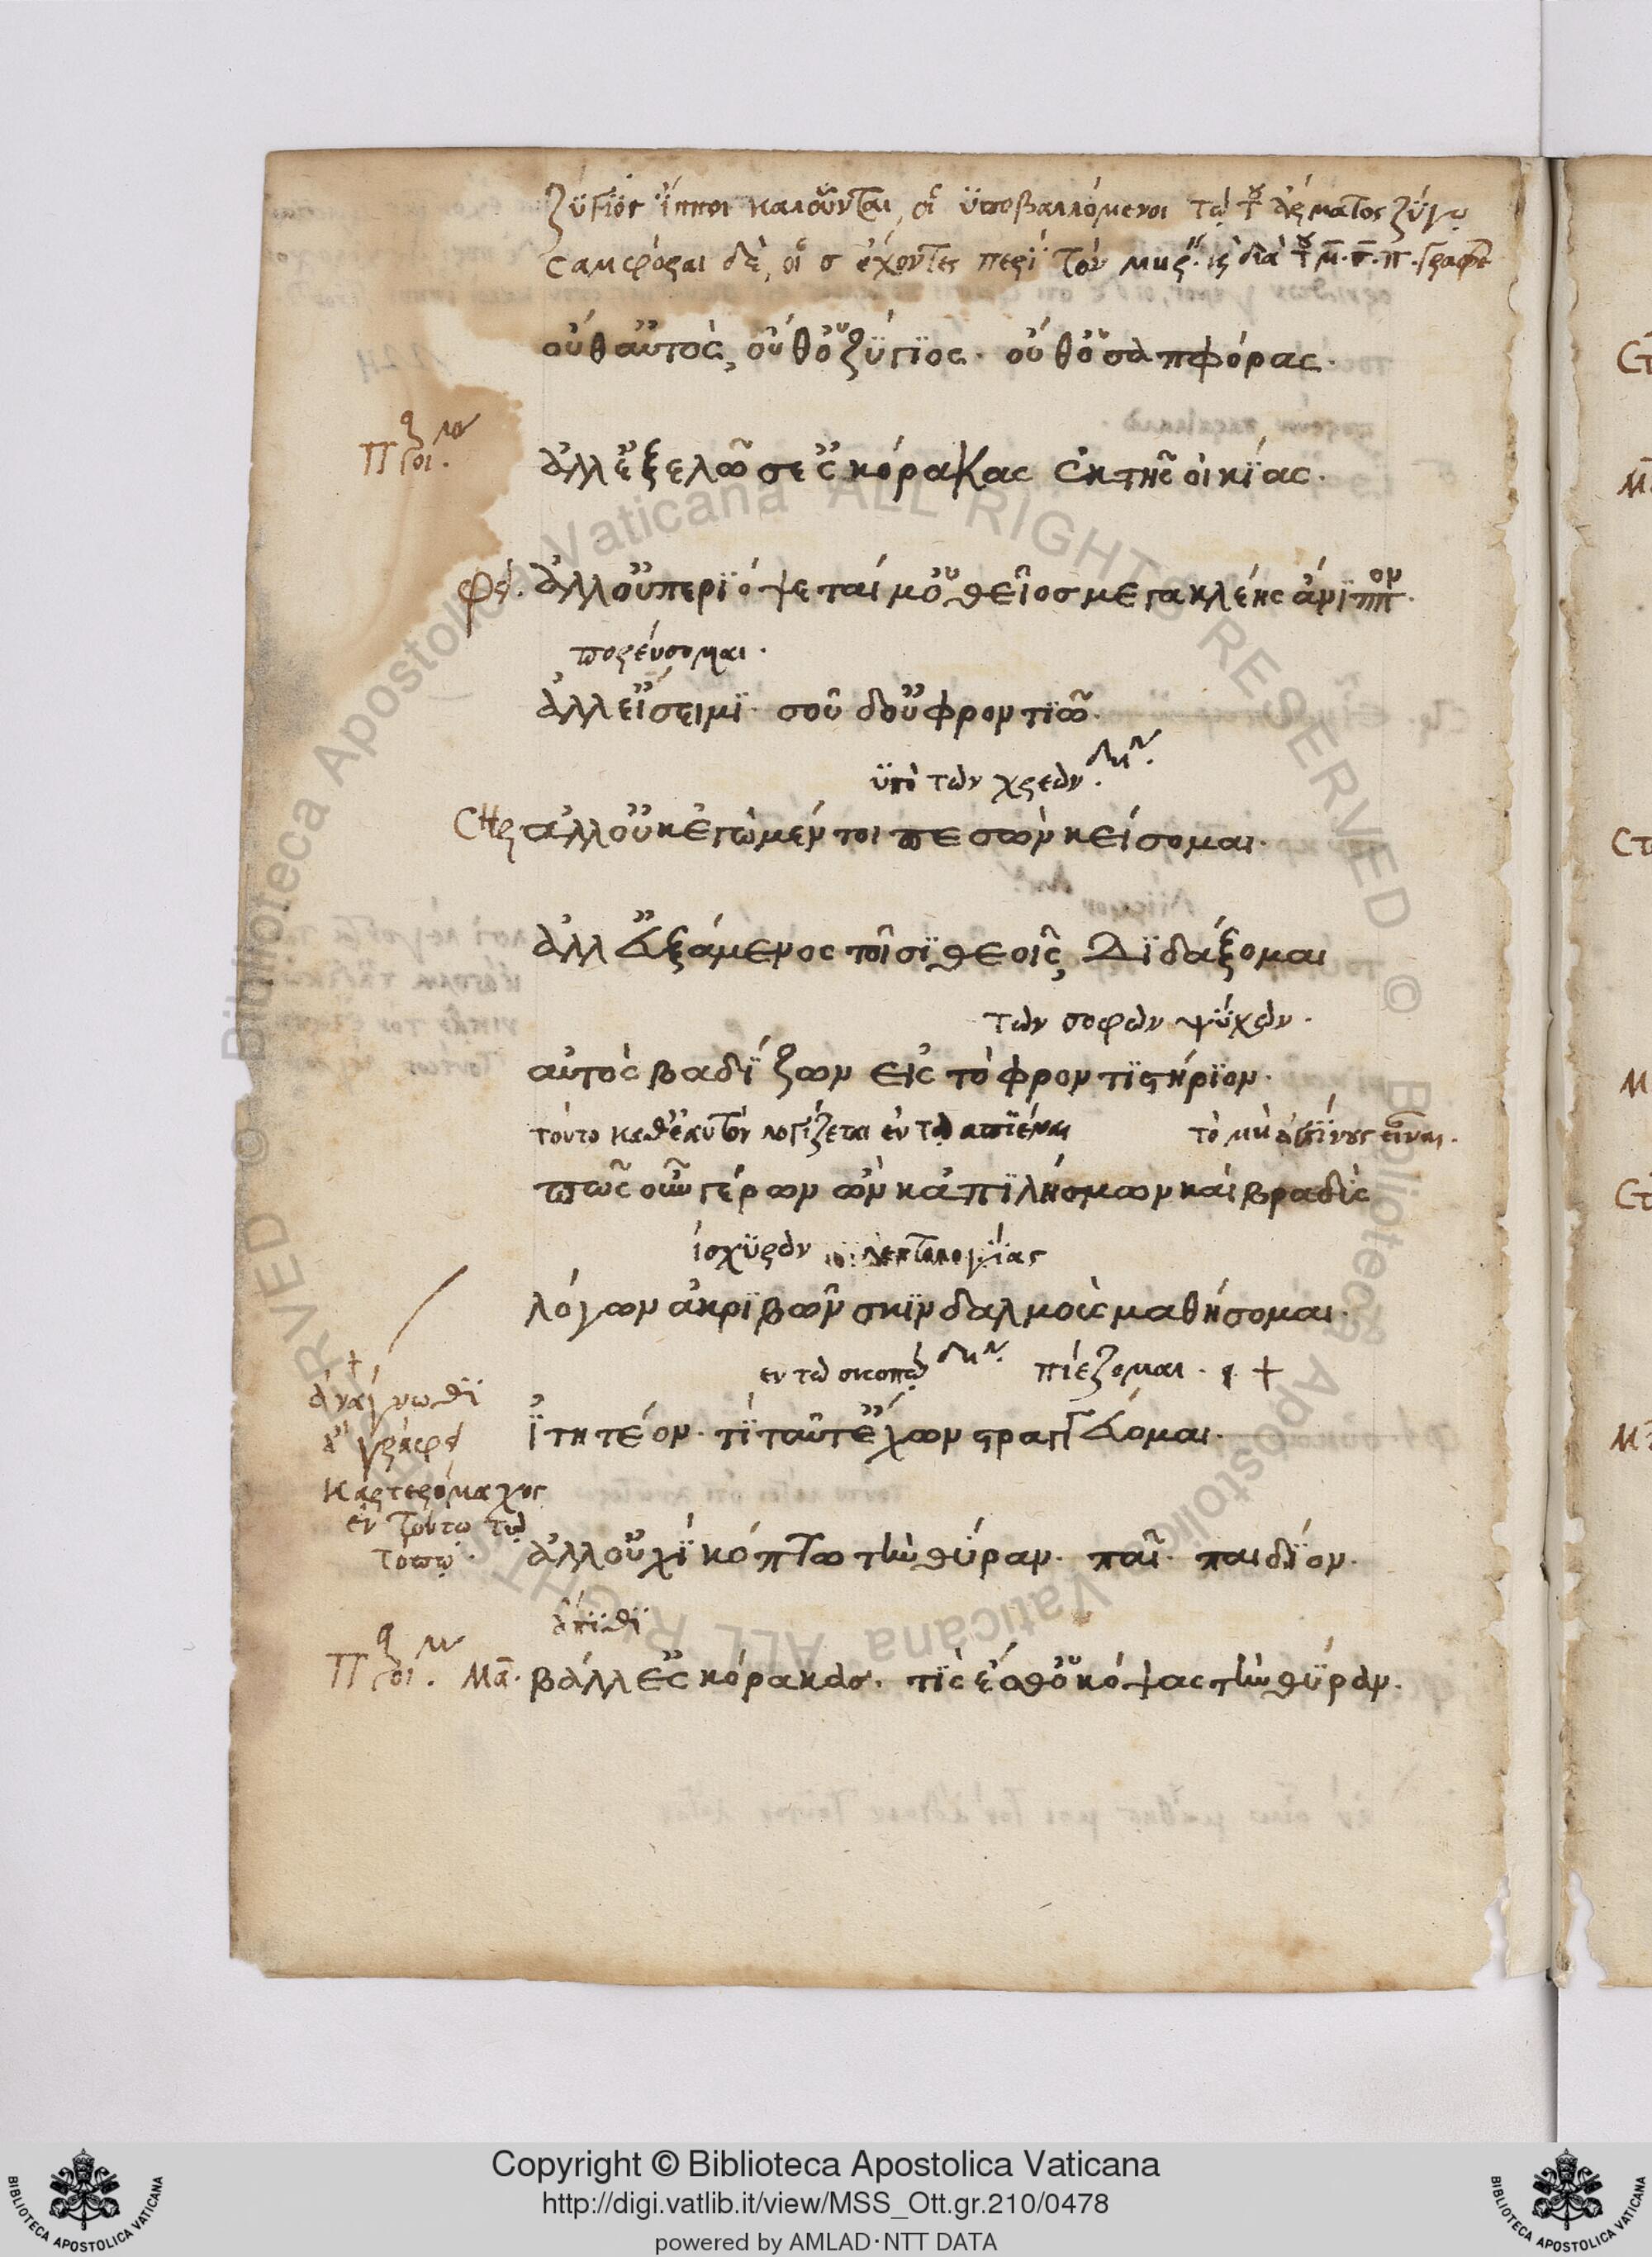 ζύγιος ἵπποι καλοῦνται, οἱ ὑποβαλλόμενοι τῷ τοῦ ἅρματος ζυγῷ
σαμφόραι δὲ, οἱ σ ἔχοντες περὶ τὸν μηρ. διὰ τοῦ μ. π.
οὔθ αὐτὸς, οὔθ ὁ ζύγιος. οὔθ ὁ σαπφόρας.
ἀλλ ἐξελῶ σ ἐς κόρακας ἐκ τῆς οἰκίας.
φει. ἀλλ οὐ περιόψεταί μ ὁ θεῖος μεγακλέης ἄνιππον.
πορεύσομαι.
ἀλλ εἴσειμι. σοῦ δ οὐ φροντιῶ.
ὑπὸ τῶν χρεῶν.
στρ ἀλλ οὐκ ἐγὼ μέν τοι πεσὼν κείσομαι.
ἀλλ εὐξάμενος τοῖσι θεοῖς, διδάξομαι
τῶν σοφῶν ψυχῶν.
αὐτὸς βαδίζων εἰς τὸ φροντιστήριον.
τοῦτο καθ ἑαυτὸν λογίζεται ἐν τῷ ἀπιέναι
πῶς οὖν γέρων ὢν κἀπιλήσμων καὶ βραδὺς
ἰσχυρῶν λεπτολογίας
λόγων ἀκριβῶν σκινδαλμοὺς μαθήσομαι.
ἐν τῷ σκοπῷ πιέζομαι. +
ἰτητέον. τί ταῦτ ἔχων στραγγεύομαι.
ἐν τούτῳ τῷ
τόπῳ.
ἀλλ οὐχὶ κόπτω τὴν θύραν. παῖ. παιδίον.
ἄπιθι
Μα. βάλλ ἐς κόρακας. τίς ἐσθ ὁ κόψας τὴν θύραν.
Copyright © Biblioteca Apostolica Vaticana
http://digi.vatlib.it/view/MSS_Ott.gr.210/0478
powered by AMLAD·NTT DATA